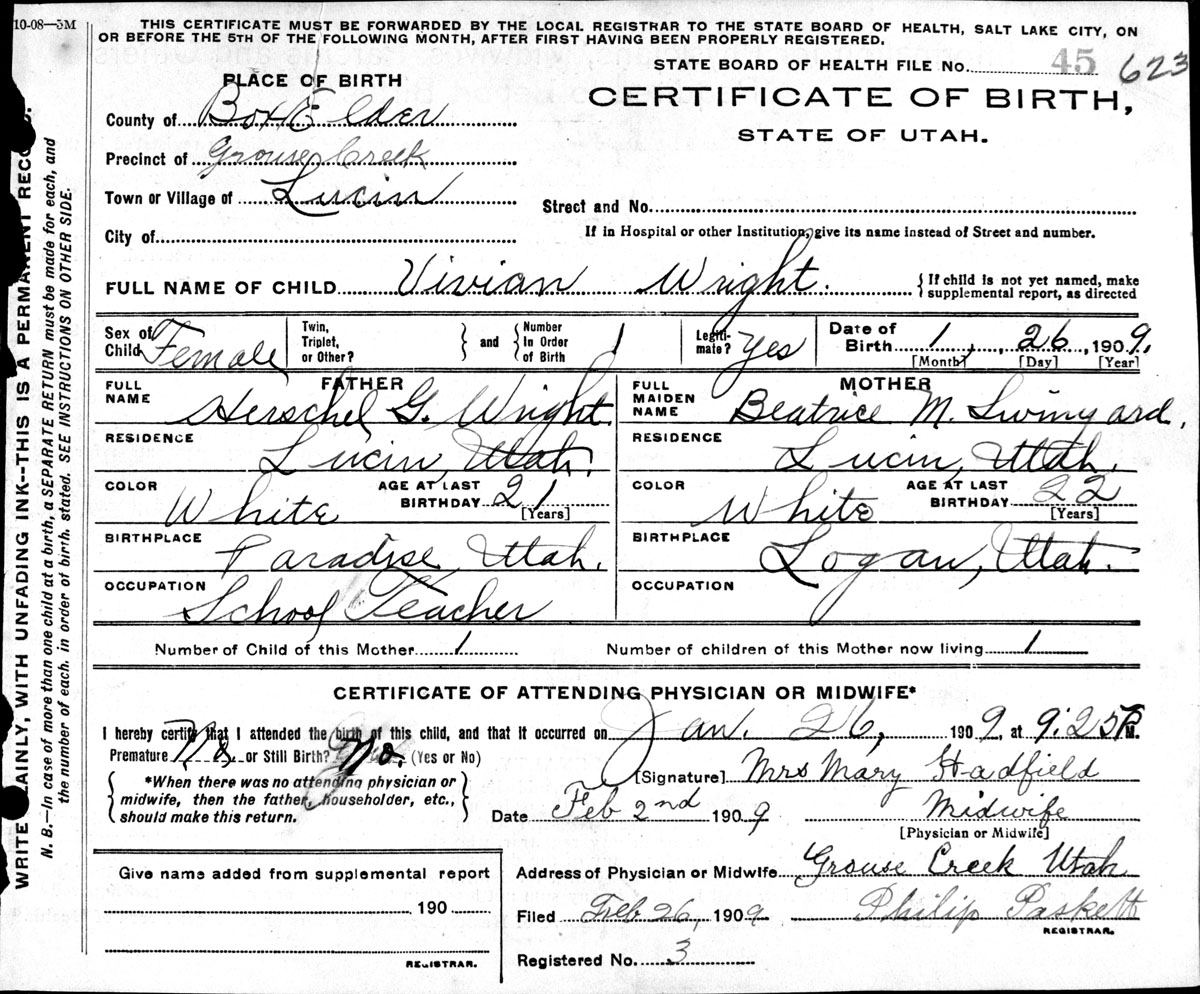 10-08—3M
THIS CERTIFICATE MUST BE FORWARDED BY THE LOCAL REGISTRAR TO THE STATE BOARD OF HEALTH, SALT LAKE CITY, ON
OR BEFORE THE 5TH OF THE FOLLOWING MONTH, AFTER FIRST HAVING BEEN PROPERLY REGISTERED.
STATE BOARD OF HEALTH FILE No. 45 623
PLACE OF BIRTH
CERTIFICATE OF BIRTH,
STATE OF UTAH.
County of Box Elder
Precinct of Grouse Creek
Town or Village of Lucin
Street and No.
City of
If in Hospital or other Institution, give its name instead of Street and number.
FULL NAME OF CHILD Vivian Wright. { If child is not yet named, make
supplemental report, as directed
Sex of Child Female
Twin, Triplet, or Other? } and { Number In Order of Birth 1
Legiti-mate? Yes
Date of Birth 1, 26, 1909.
[Month] [Day] [Year]
FATHER
FULL NAME Herschel G. Wright
RESIDENCE Lucin, Utah.
COLOR White AGE AT LAST BIRTHDAY 21 [Years]
BIRTHPLACE Paradise, Utah.
OCCUPATION School Teacher
MOTHER
FULL MAIDEN NAME Beatrice M. Swinyard,
RESIDENCE Lucin, Utah.
COLOR White AGE AT LAST BIRTHDAY 22 [Years]
BIRTHPLACE Logan, Utah.
OCCUPATION
Number of Child of this Mother 1 Number of children of this Mother now living 1
CERTIFICATE OF ATTENDING PHYSICIAN OR MIDWIFE*
I hereby certify that I attended the birth of this child, and that it occurred on Jan. 26, 1909, at 9:25 P.M.
Premature No. or Still Birth? No. (Yes or No)
{ *When there was no attending physician or
midwife, then the father, householder, etc.,
should make this return. }
[Signature] Mrs Mary Hadfield
Date Feb 2nd 1909 Midwife
[Physician or Midwife]
Address of Physician or Midwife Grouse Creek Utah
Filed Feb 26, 1909 Philip Paskett
REGISTRAR.
Registered No. 3
Give name added from supplemental report
190
REGISTRAR.
WRITE LAINLY, WITH UNFADING INK--THIS IS A PERMANENT RECO D.
N. B.—In case of more than one child at a birth, a SEPARATE RETURN must be made for each, and
the number of each, in order of birth, stated. SEE INSTRUCTIONS ON OTHER SIDE.